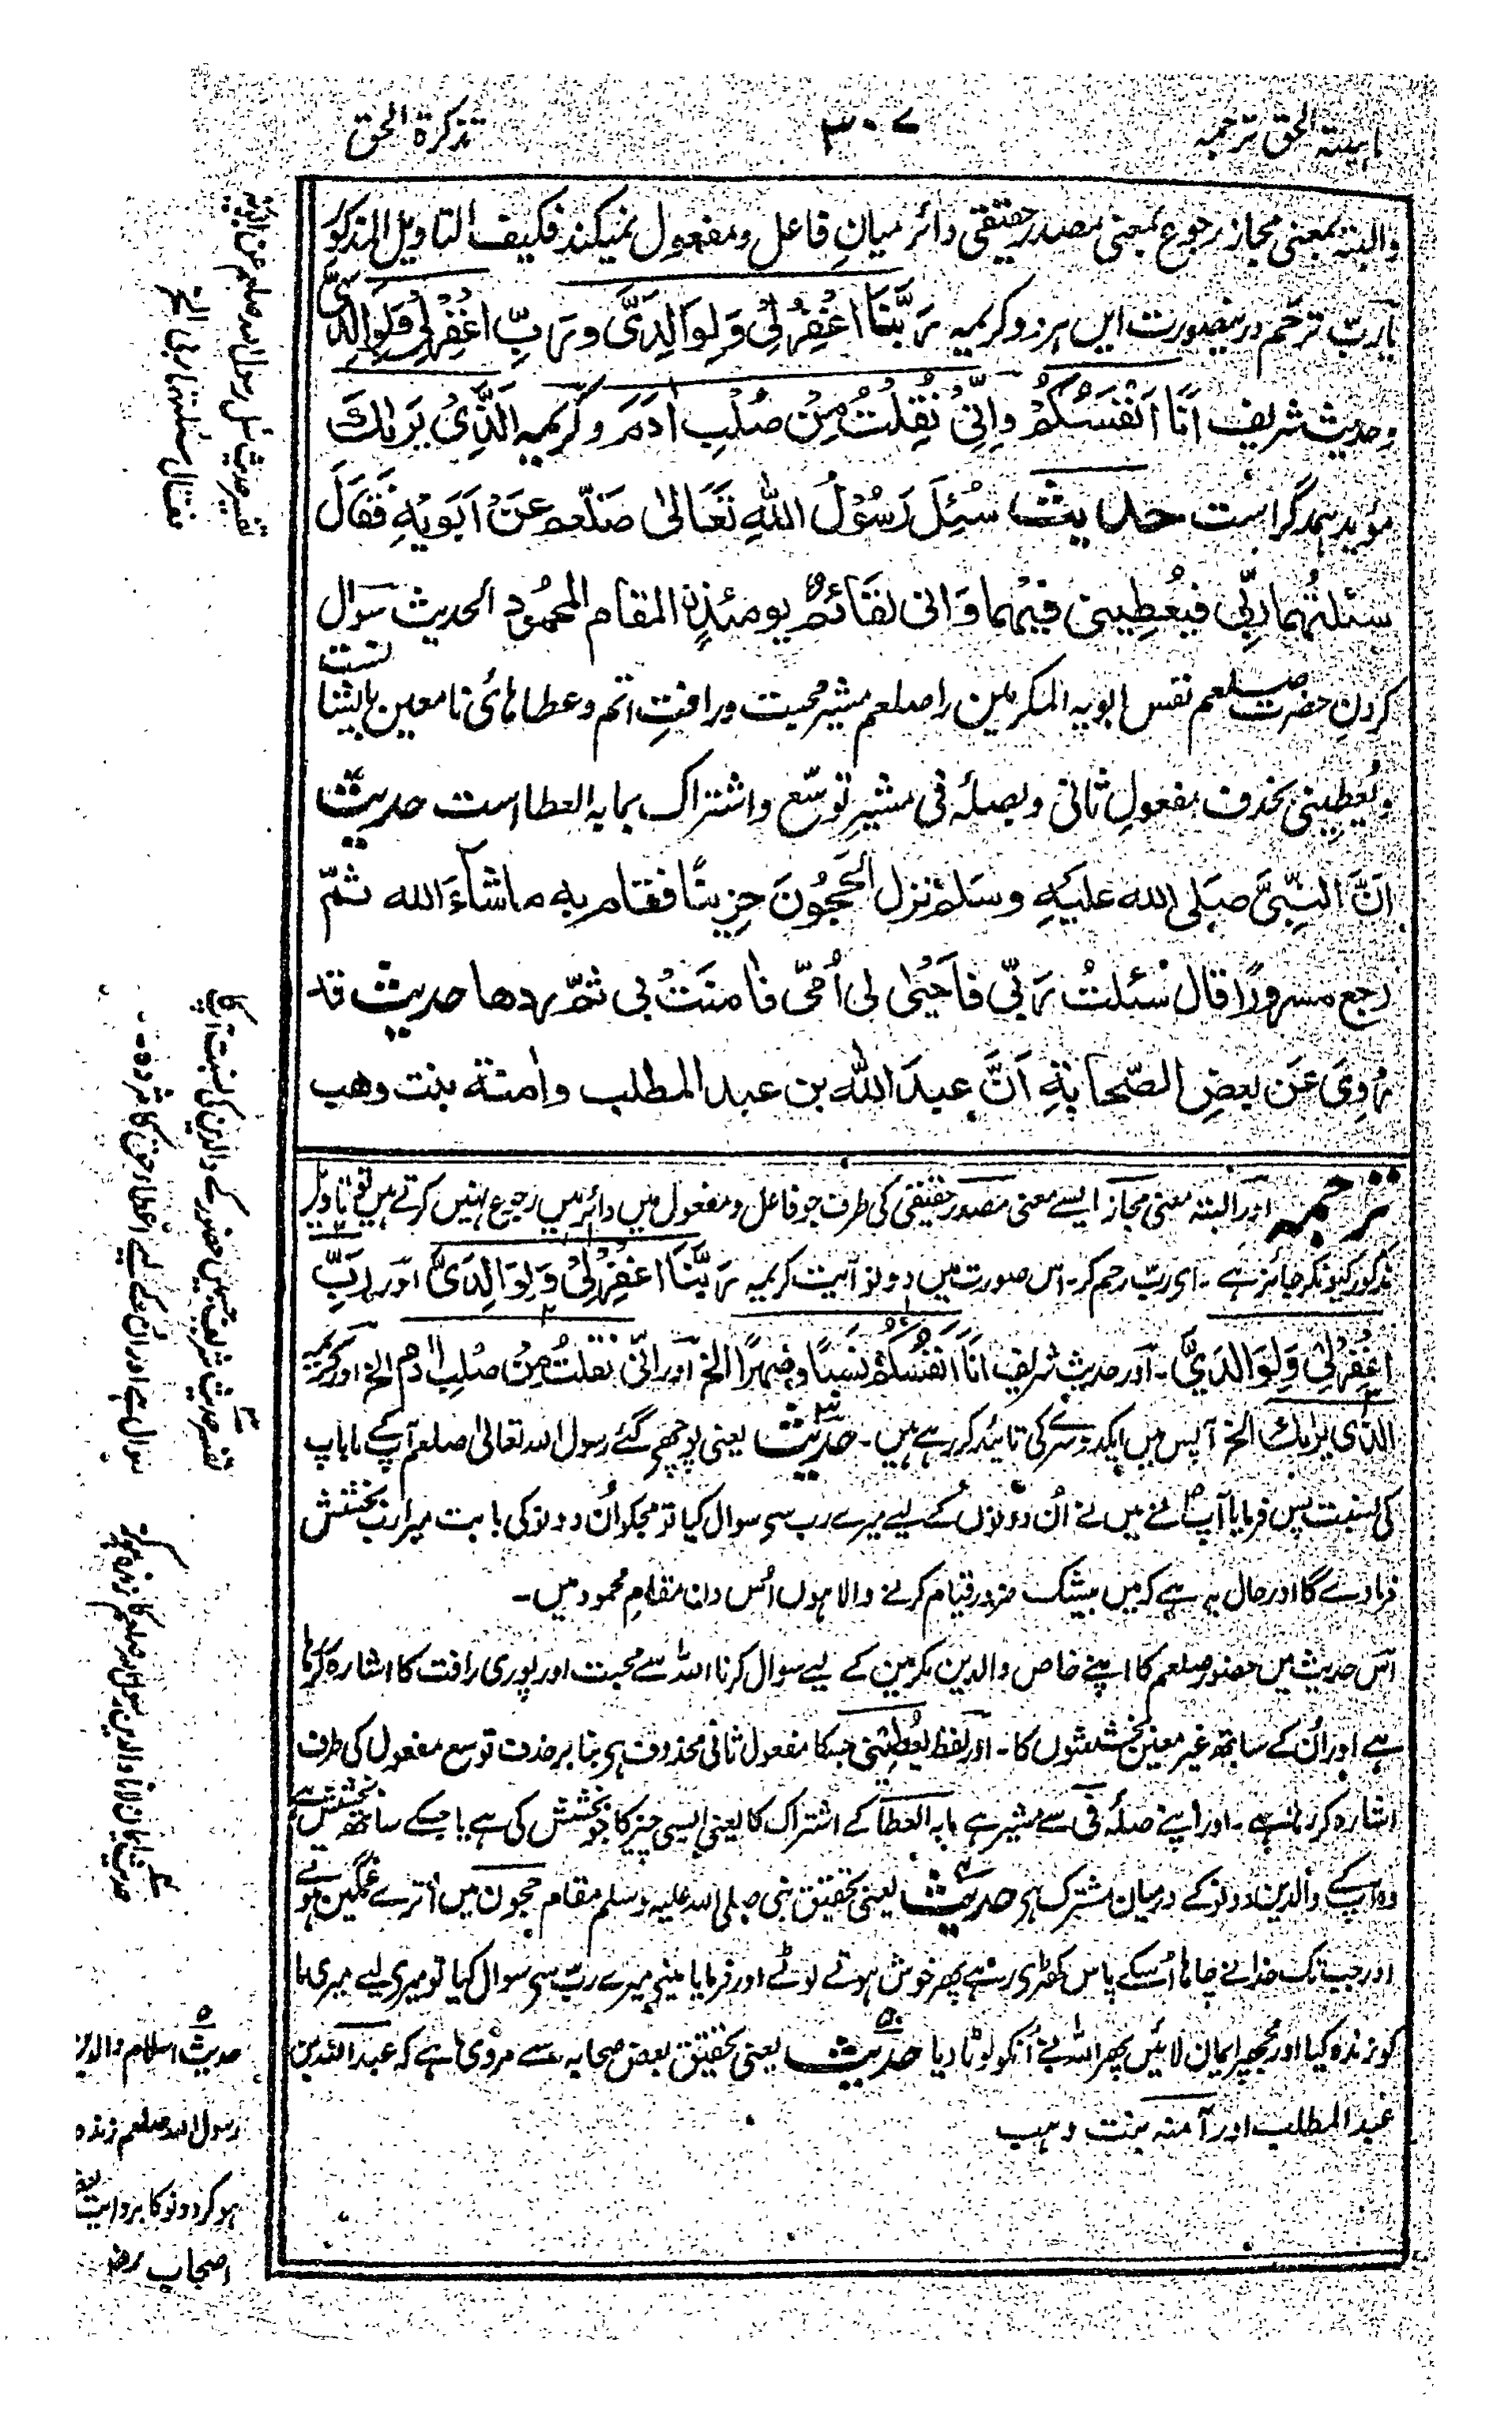 اہنتہ الحق ترجمہ
۳۰۷
تذکرۃ الحق
والبتہ بمعنی مجاز رجوع بمعنی مصدر حقیقی دائر میان فاعل ومفعول نمیکند فکیف التاویل المذکور
یارب ترحم درینصورت ایں ہر دو کریمہ رَبَّنَا اغْفِرْ لِیْ وَلِوَالِدَیَّ و رَبِّ اغْفِرْ لِیْ وَلِوَالِدَیَّ
وحدیث شریف اَنَا اَنْفَسُکُمْ وَاِنِّیْ نُقِلْتُ مِنْ صُلْبِ اٰدَمَ وکریمہ الَّذِیْ یَرٰىكَ
مؤید ہمدگر است حدیث سُئِلَ رَسُوْلُ اللّٰهِ تَعَالٰی صَلّعم عَنْ اَبَوَیْهِ فَقَالَ
سئلتُهما ربّی فیُعطِینی فیهما وَانی لقَائمٌ یومئذٍ المقام المحمُود الحدیث سوال
کردنِ حضرت صلعم نفس ابویہ المکرمین را صلعم مشیر محبت ورافتِ اتم وعطاہائ نامعین بایشاں ست
ویُعطِینی بحذف مفعولِ ثانی وبصلہ فی مشیرِ توسّع واشتراک بما بہ العطا است حدیث
اَنَّ النبِیَّ صَلی الله علیهِ وسَلم نزل الحَجُونَ حزِینًا فقام بهٖ ماشآءَ الله ثمّ
رجع مسرورًا قال سئلتُ رَبّی فاَحیٰی لی اُمّی فاٰمنَتْ بی ثمّ ردها حدیث قد
رُوِیَ عَن بعضِ الصّحابَةِ اَنَّ عبدَ الله بن عبد المطلب واٰمنة بنت وهب
ترجمہ اور البتہ معنی مجاز ایسے معنی مصدر حقیقی کی طرف جو فاعل ومفعول میں دائر ہیں رجوع نہیں کرتے ہیں تو تاویل
مذکور کیونکر جائز ہے۔ ای رب رحم کر۔ اس صورت میں دونو آیت کریمہ رَبَّنَا اغْفِرْ لِیْ وَلِوَالِدَیَّ اور رَبِّ
اغْفِرْ لِیْ وَلِوَالِدَیَّ۔ اور حدیث شریف اَنَا اَنْفَسُکُمْ نَسَبًا وصِہرًا الخ اور اِنّی نقلتُ مِنْ صُلبِ اٰدم الخ اور کریمہ
الذی یرٰىك الخ آپس میں ایکدوسرے کی تائید کر رہے ہیں۔ حدیث یعنی پوچھے گئے رسول اللہ تعالیٰ صلعم آپکے ماباپ
کی نسبت پس فرمایا آپ نے میں نے اُن دونوں کے لیے میرے رب سی سوال کیا تو مجکو اُن دونوکی بابت میرا رب بخشش
فرمادے گا اور حال یہ ہے کہ میں بیشک ضرور قیام کرنے والا ہوں اُس دن مقامِ محمود میں۔
اس حدیث میں حضور صلعم کا اپنے خاص والدین مکرمین کے لیے سوال کرنا اللہ سے محبت اور پوری رافت کا اشارہ کرتا
ہے اور اُن کے ساتھ غیر معین بخششوں کا۔ اور لفظ یُعطِیَنی جسکا مفعول ثانی محذوف ہی بنا بر حذف توسع مفعول کی طرف
اشارہ کر رہا ہے۔ اور اپنے صلہ فی سے مشیر ہے مابہ العطا کے اشتراک کا یعنی ایسی چیز کا جو بخشش کی ہے یا جسکے ساتھ بخشش ہے
وہ آپکے والدین دونوکے درمیان مشترک ہی حدیث یعنی تحقیق نبی صلی اللہ علیہ وسلم مقام حجون میں اُترے غمگین ہوتے
اور جب تک خدا نے چاہا اُسکے پاس کھڑی رہے پھر خوش ہوتے لوٹے اور فرمایا مینے میرے رب سی سوال کیا تو میری لیے میری ما
کو زندہ کیا اور مجھپر ایمان لائیں پھر اللہ نے اُنکو لوٹا دیا حدیث یعنی تحقیق بعض صحابہ سے مروی ہے کہ عبد اللہ بن
عبد المطلب اور آمنہ بنت وہب
تفسیر حدیث سئل رسول اللہ صلعم عن ابویہ
فقال سئلتہما ربی الخ
تفسیر حدیث شریف جسمیں حضور کے والدین کی نسبت آپکا
سوال ہے اور اُن کے لیے اعطاء حق کا مژدہ۔
حدیث ایمان لانا والدین رسول اللہ صلعم کا زندہ ہو کے
۵
حدیث اسلام والدین
رسول اللہ صلعم زندہ
ہو کر دونو کا بروایت بعض
اصحاب رض